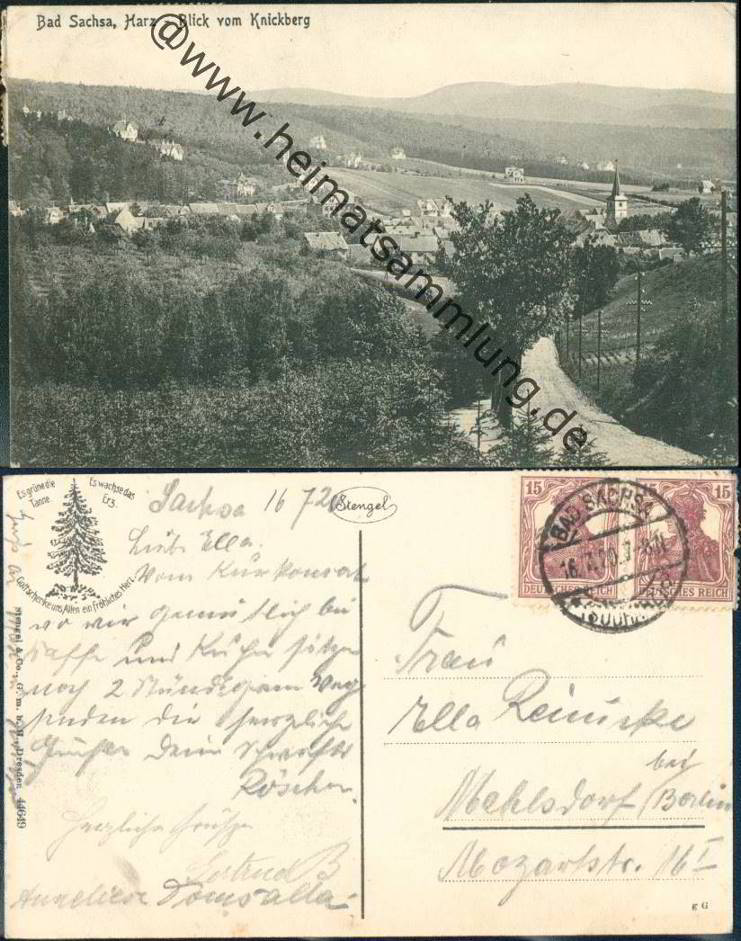 Bad Sachsa, Harz - Blick vom Knickberg
@www.heimatsammlung.de
Es grüne die
Tanne
Es wachse das
Erz.
Gott schenke uns Allen ein Fröhliches Herz.
Stengel
Stengel & Co., G. m. b. H., Dresden 44649
Sachsa 16 7 20
Liebe Ella.
Vom Kurkonzert
wo wir gemütlich bei
Kaffe und Kuchen sitzen
nach 2 Stündigem Weg
senden die herzliche
Grüße deine Schwester
Röschen
Herzliche Grüße
Gertrud B
Annelies Domsalla
15 15
DEUTSCHES REICH
DEUTSCHES REICH
BAD SACHSA
16.7.20.7-8N
(SÜDHARZ)
Frau
Ella Reinicke
bei
Mahlsdorf (Berlin
Mozartstr. 16 I
g G